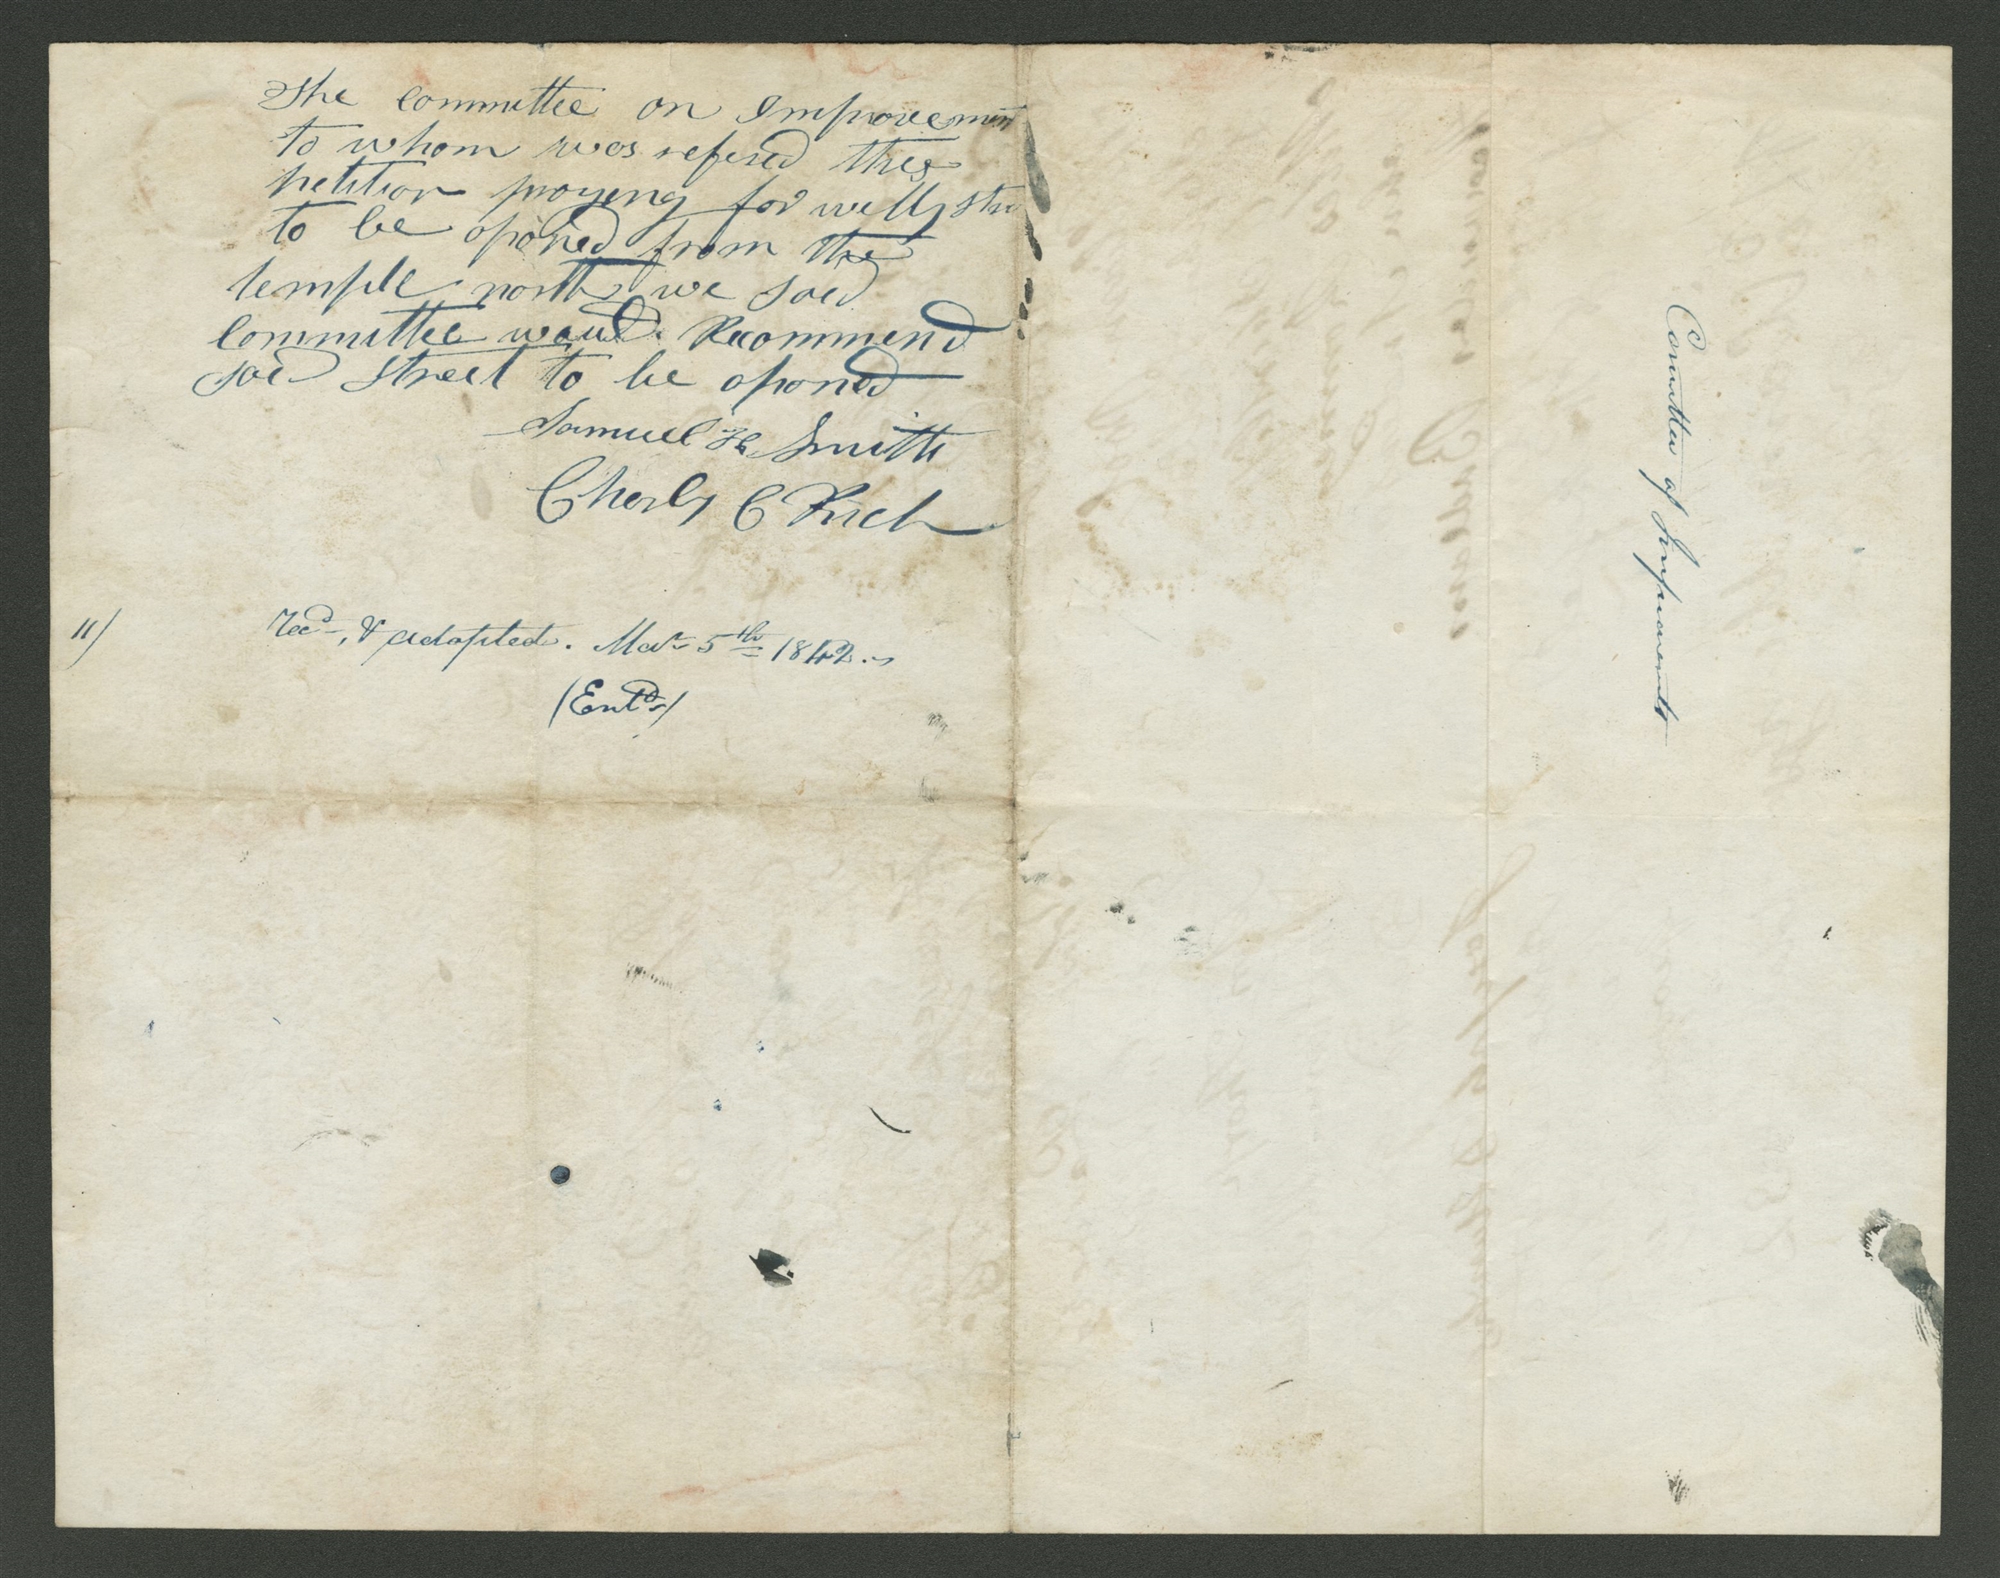 The committee on Improvement
to whom was refered this
petition praying for wells stre
to be oponed from the
temple north we said
committee would Recommend
said street to be oponed
Samuel H Smith
Charls C Rich
11/
Recd., & adopted. Mar 5th 1842.
/Entd/
Committee of Improvements